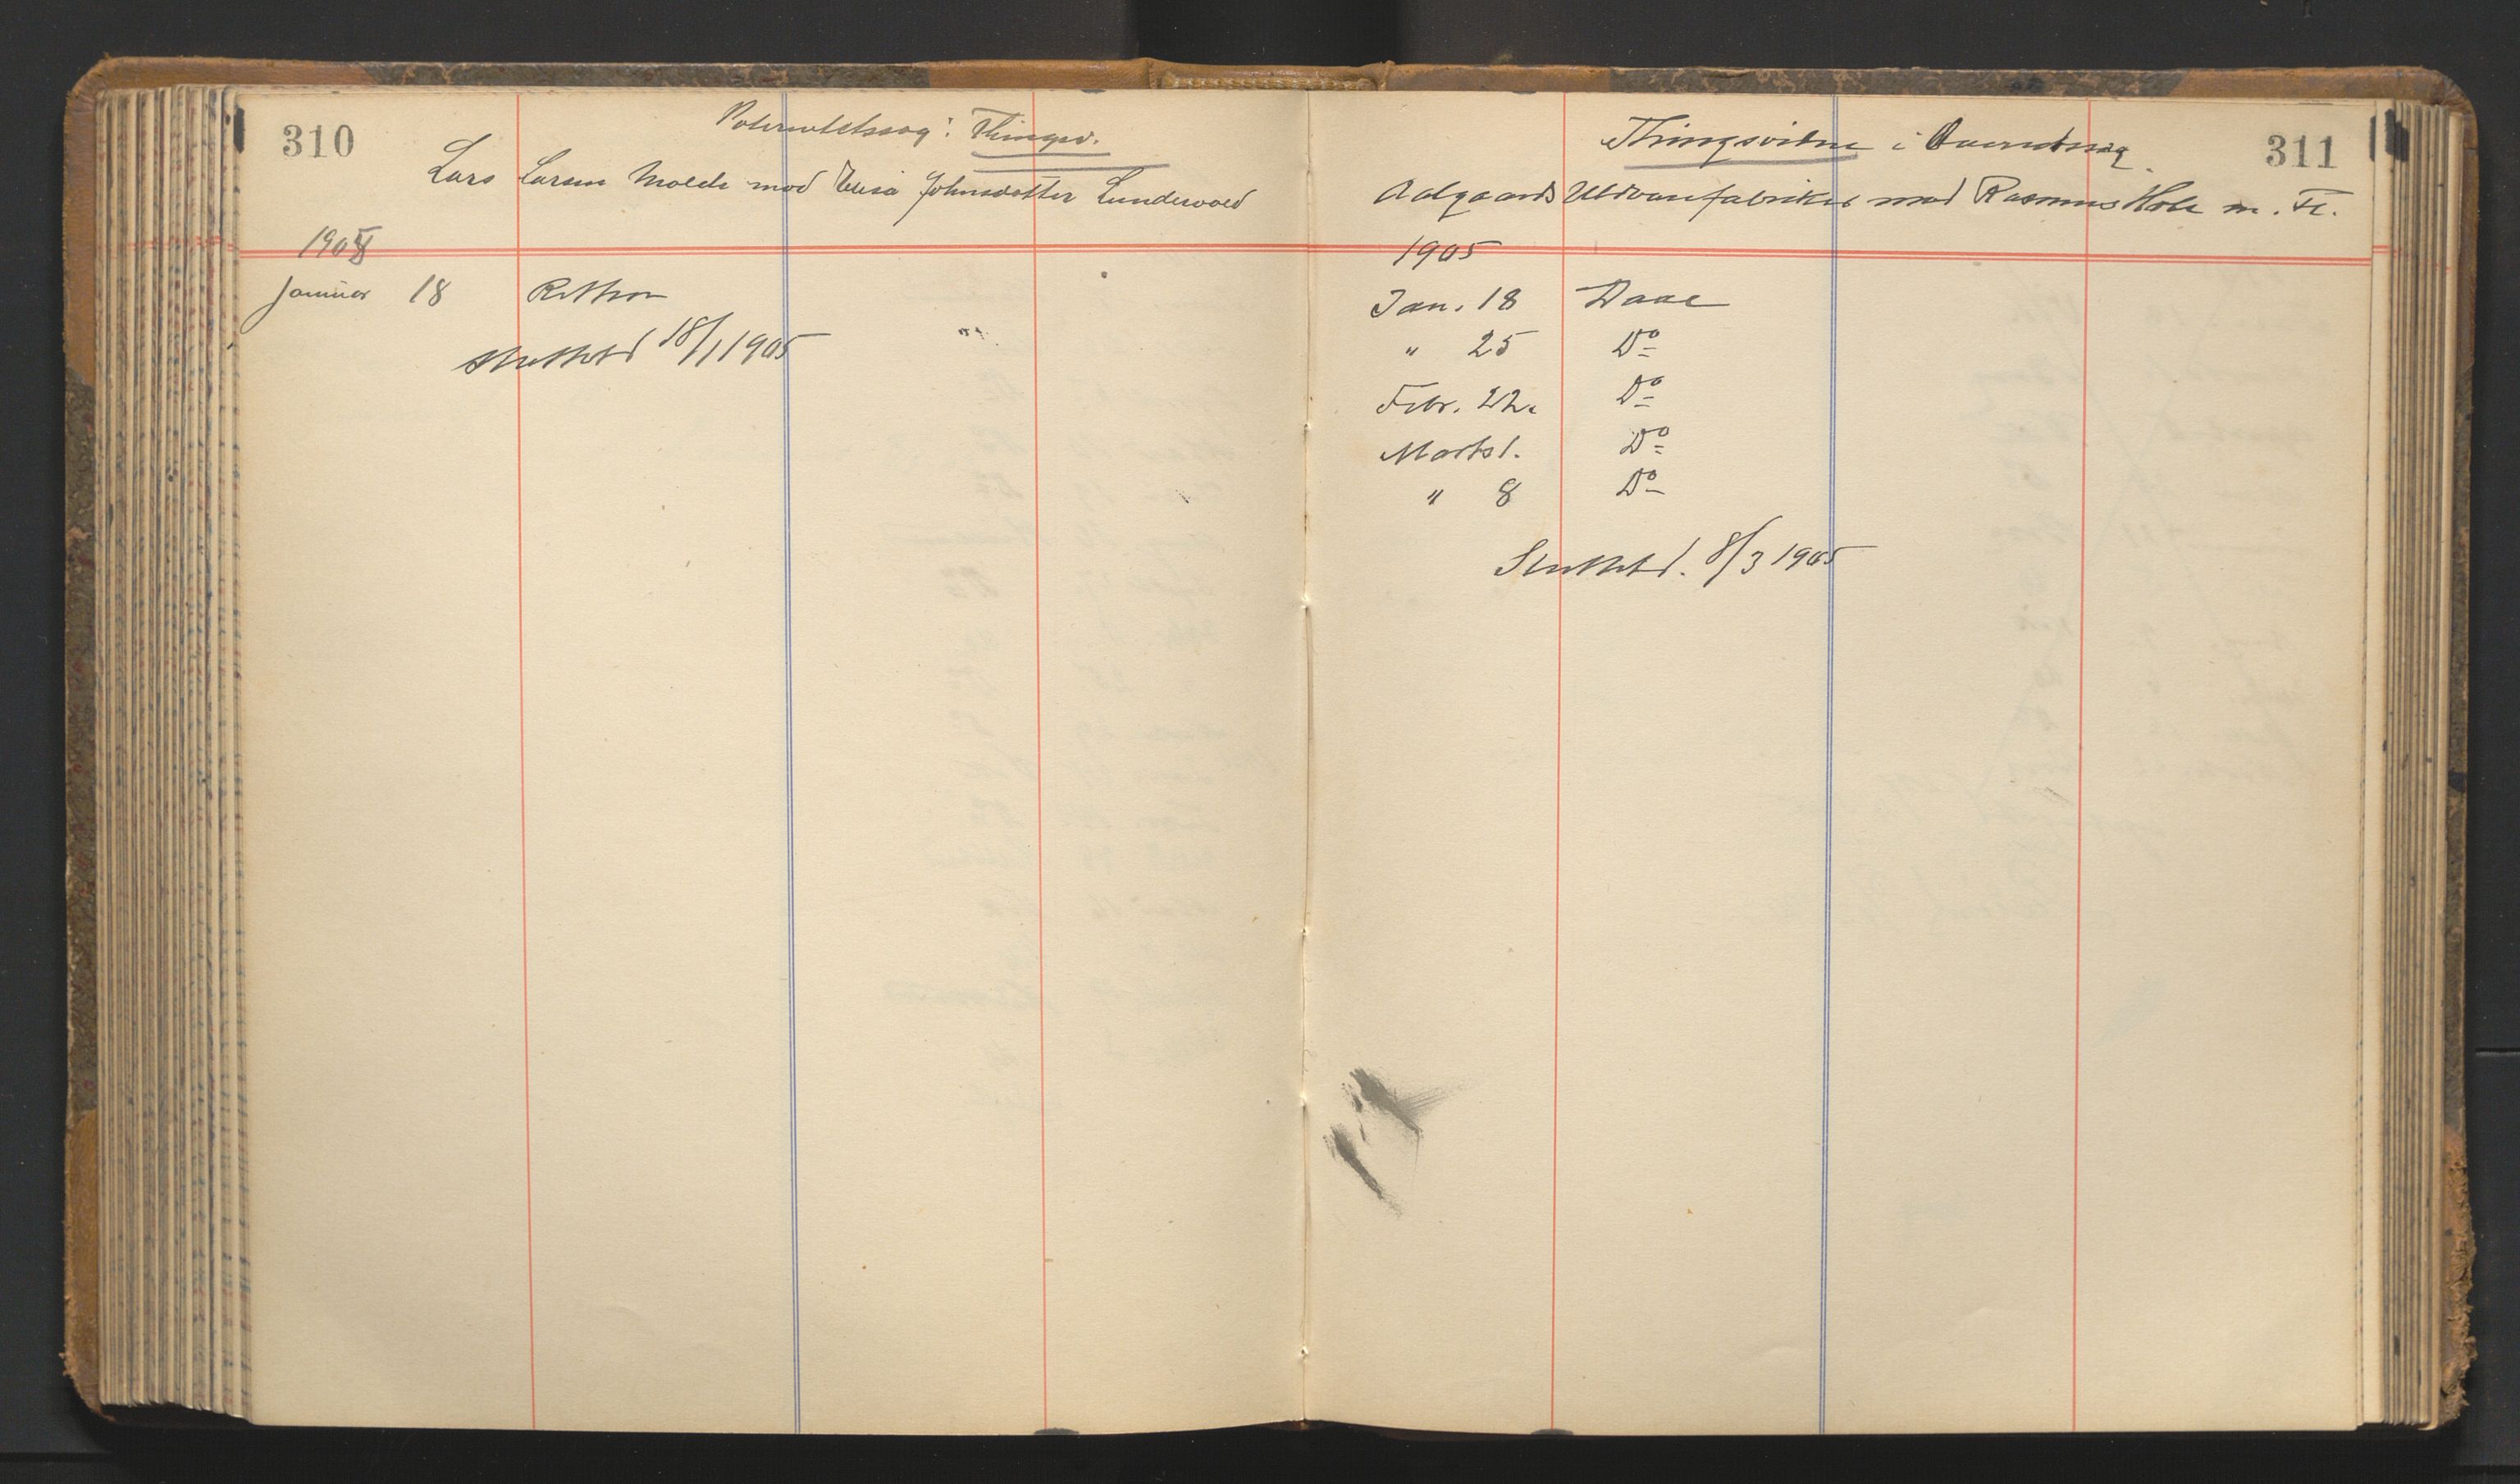 310
Paternitetssag: Thingsv.
Lars Larsen Molde mod Elisa Johnsdotter Lundevold
1905
Januar 18
Sluttet d 18/1 1905
311
Thingsvidne i
Aalgaards Uldvarefabriker mod Rasmus Hole m. Fl.
1905
Jan. 18 Daae
" 25 Do
Febr. 22. Do
Marts 1. Do
" 8 Do
Sluttet d. 8/3 1905